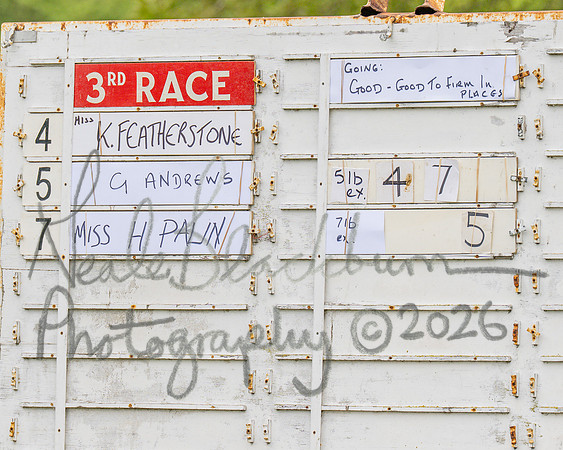 3RD RACE
GOING:
GOOD - GOOD TO FIRM IN
PLACES
4 MISS K. FEATHERSTONE
5 G ANDREWS 5lb ex. 4 7
7 MISS H PALIN 7lb ex. 5
Neale Blackburn
Photography © 2026